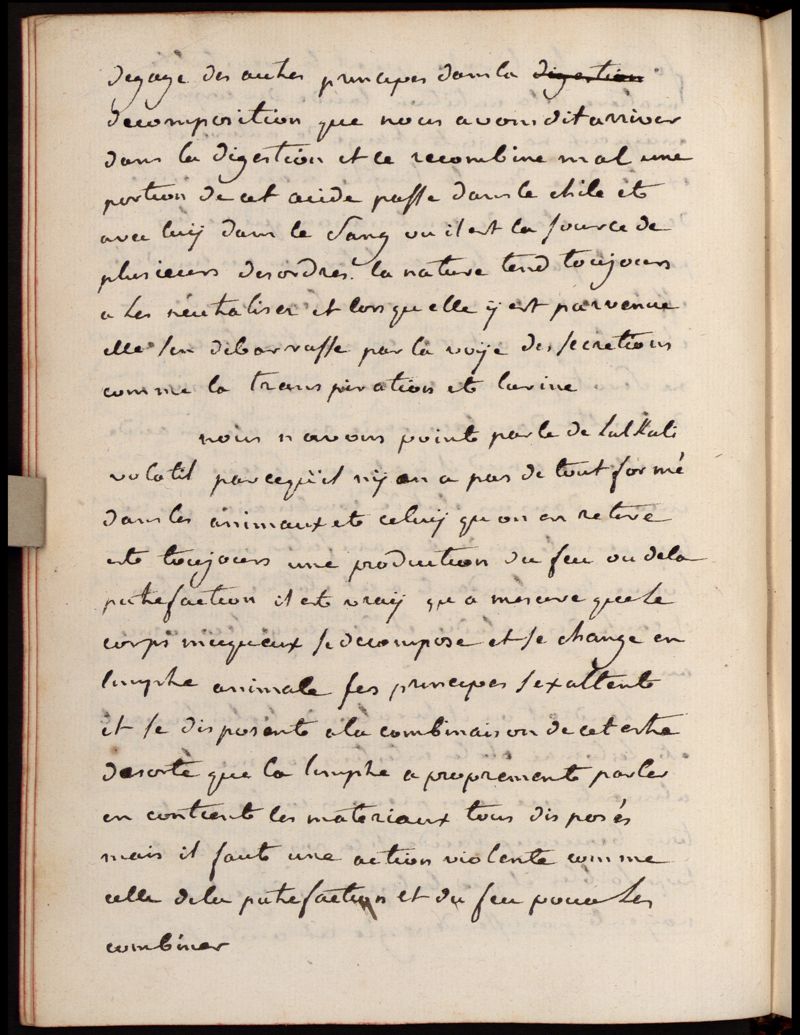 degage des autres principes dans la digestion
decomposition que nous avons dit arriver
dans la digestion et ce recombine mal une
portion de cet acide passe dans le chile et
avec luy dans le sang ou il est la source de
plusieurs desordres. la nature tend toujours
a les neutraliser et lors qu elle ÿ est parvenue
elle s'en debarrasse par la voÿe des secretions
comme la transpiration et lurine
nous n avons point parle de lalkali
volatil parcequ'il nÿ en a pas de tout formé
dans les animaux et celuÿ qu on en retire
est toujours une production du feu ou dela
putrefaction il est vraÿ qu a mesure que le
corps muqueux se decompose et se change en
limphe animale ses principes s exaltent
et se disposent a la combinaison de cet estre
desorte que la limphe a proprement parler
en contient les materiaux tous disposés
mais il faut une action violente comme
celle dela putrefaction et du feu pour les
combiner